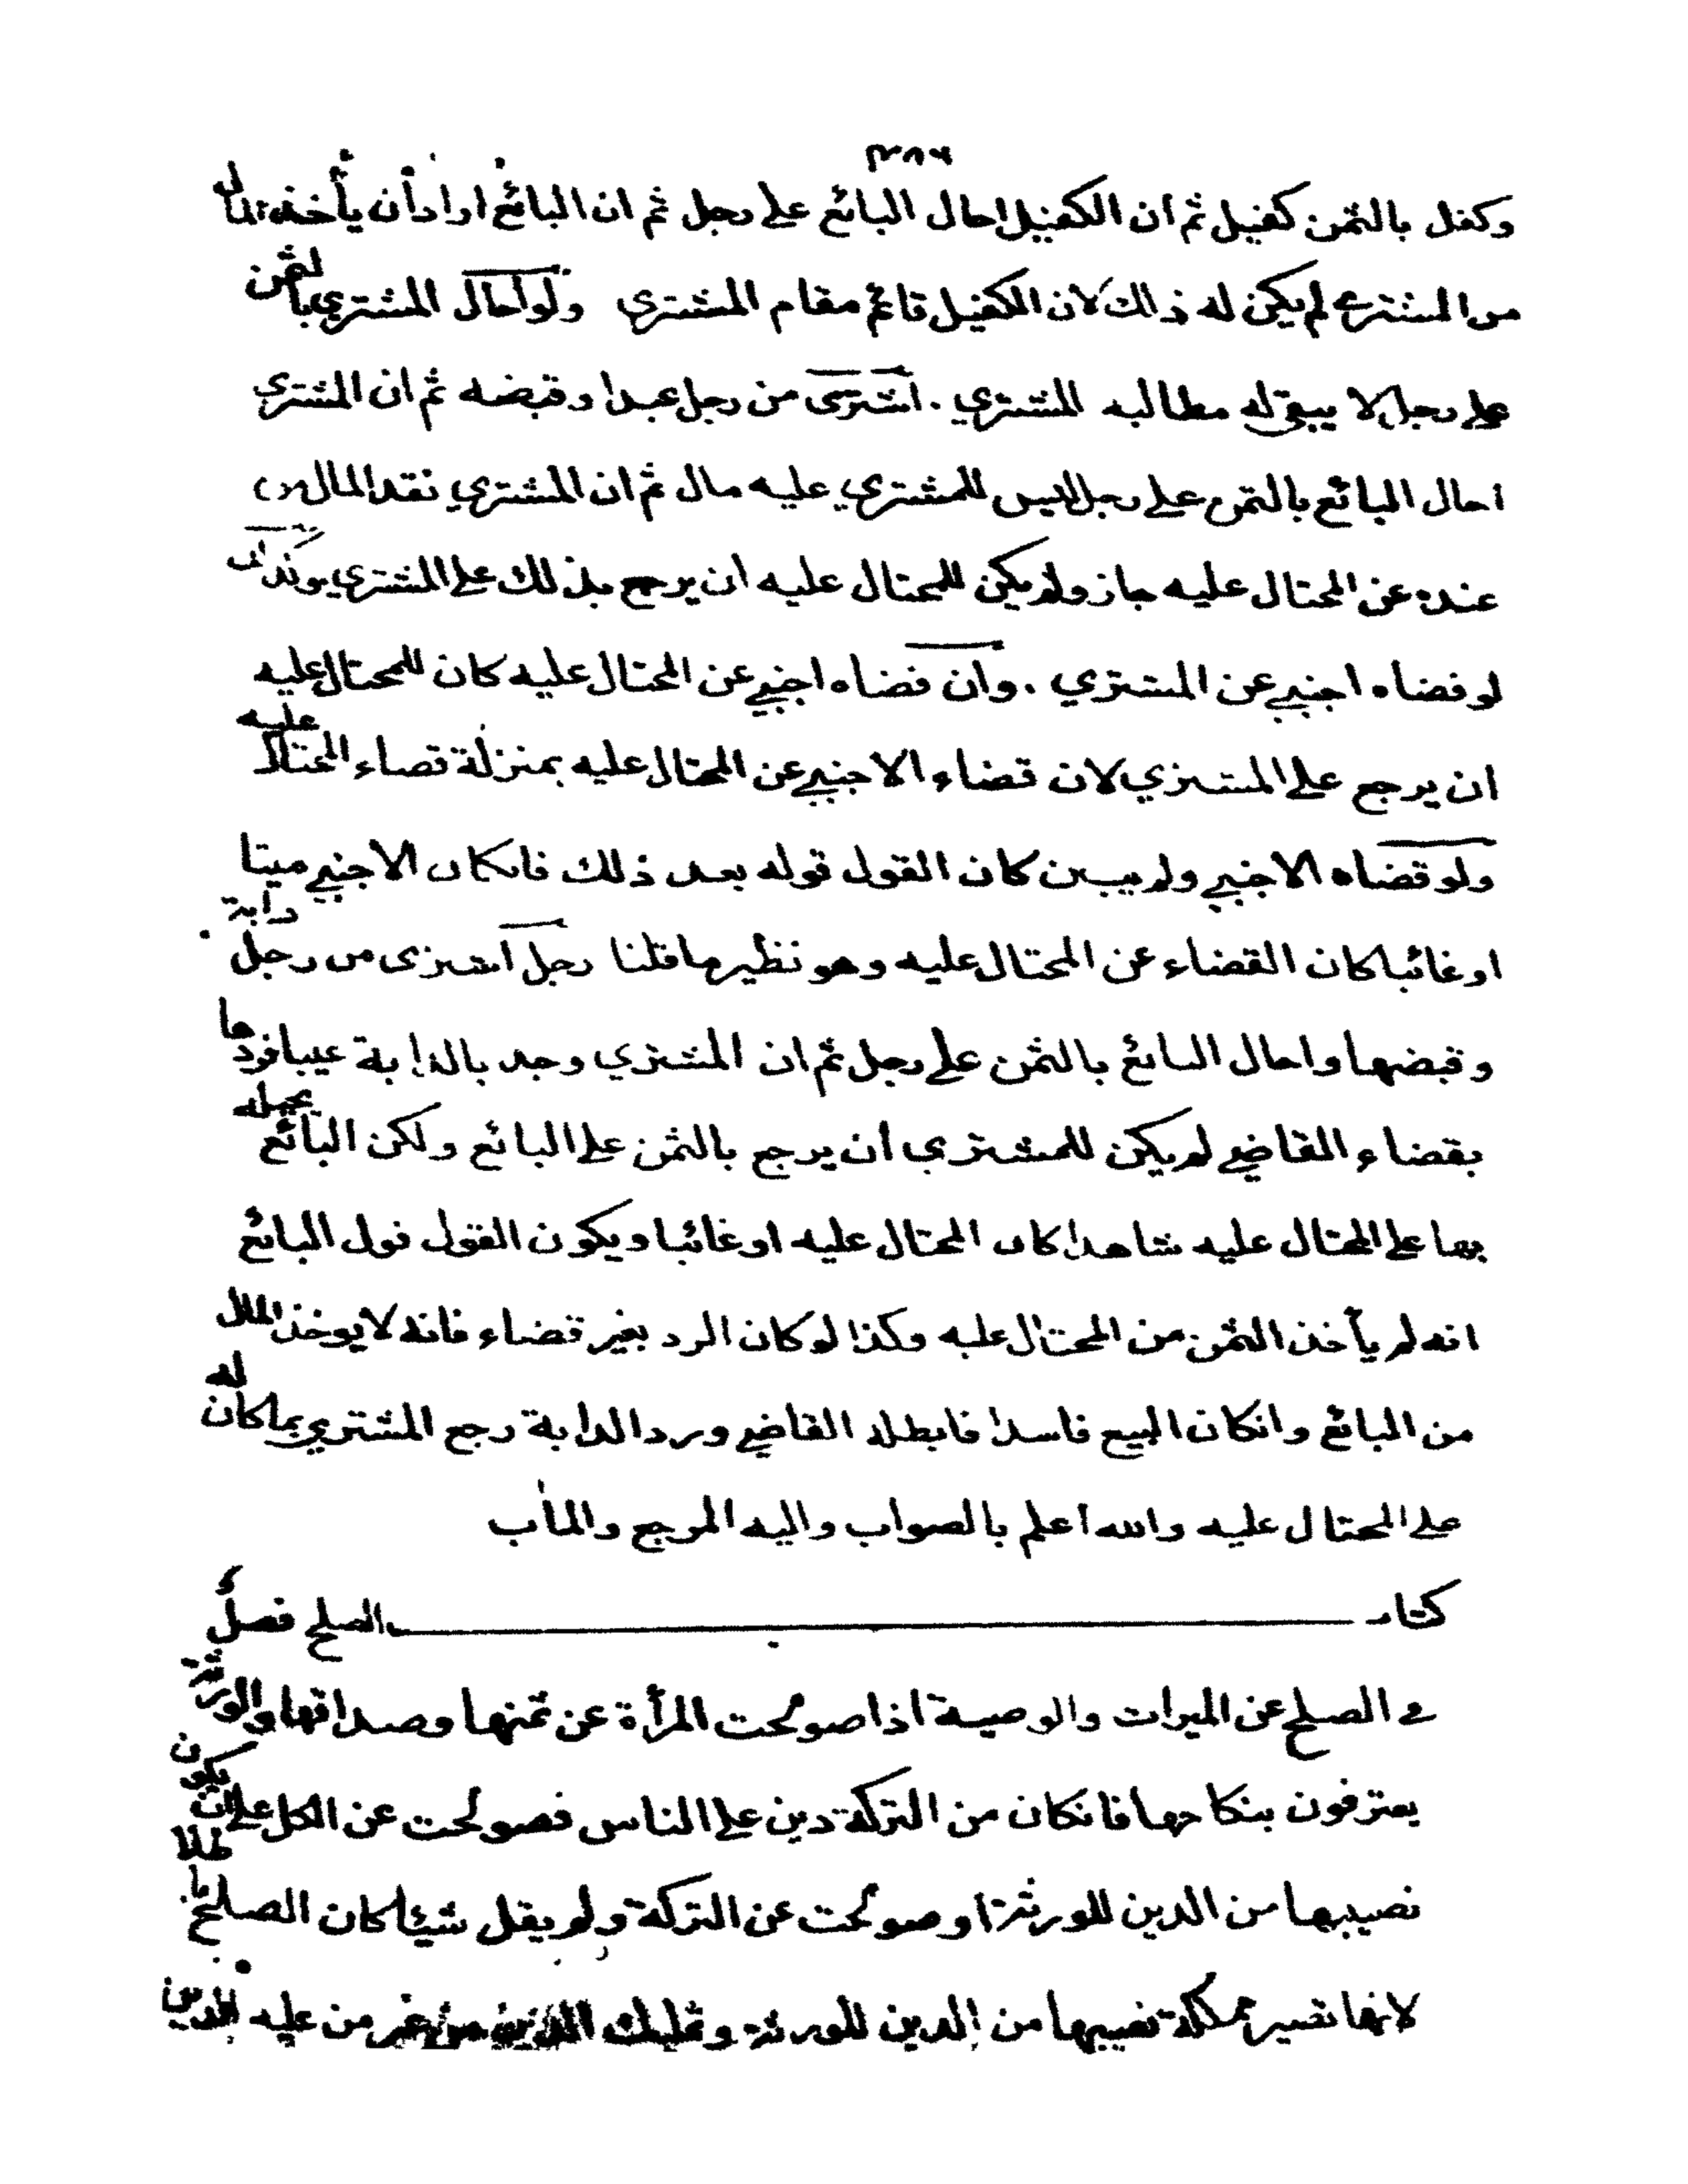 وكفل بالثمن كفيل ثم ان الكفيل احال البائع على رجل ثم ان البائع اراد أن يأخذ المال
من المشتري لم يكن له ذالك لان الكفيل قائم مقام المشتري ولو احال المشتري بالثمن
على رجل لا يبقى له مطالبه المشتري . اشترى من رجل عبدا وقبضه ثم ان المشتري
احال البائع بالثمن على رجل ليس للمشتري عليه مال ثم ان المشتري نقد المال
عنده عن المحتال عليه جاز ولم يكن للمحتال عليه ان يرجع بذلك على المشتري
لو قضاه اجنبي عن المشتري . وان قضاه اجنبي عن المحتال عليه كان للمحتال عليه
ان يرجع على المشتري لان قضاء الاجنبي عن المحتال عليه بمنزلة قضاء المحتال عليه
ولو قضاه الاجنبي ولم يبين كان القول قوله بعد ذلك فانكان الاجنبي ميتا
او غائبا كان القضاء عن المحتال عليه وهو نظير ما قلنا رجل اشترى من رجل دابة
وقبضها واحال البائع بالثمن على رجل ثم ان المشتري وجد بالدابة عيبا فردها
بقضاء القاضي لم يكن للمشتري ان يرجع بالثمن على البائع ولكن البائع يحيله
بها على المحتال عليه شاهدا كان المحتال عليه او غائبا ويكون القول قول البائع
انه لم يأخذ الثمن من المحتال عليه وكذا لو كان الرد بغير قضاء فانه لا يوخذ المال
من البائع وانكان البيع فاسدا فابطله القاضي ورد الدابة رجع المشتري بما كان له
على المحتال عليه والله اعلم بالصواب واليه المرجع والمأب
كتاب الصلح فصل
في الصلح عن الميراث والوصية اذا صولحت المرأة عن ثمنها وصداقها والورثة
يعترفون بنكاحها فانكان من التركة دين على الناس فصولحت عن الكل على ان يكون
نصيبها من الدين للورثة او صولحت عن التركة ولم يقل شيئا كان الصلح باطلا
لانها تصير مملكة نصيبها من الدين للورثة وتمليك الدين من غير من عليه الدين